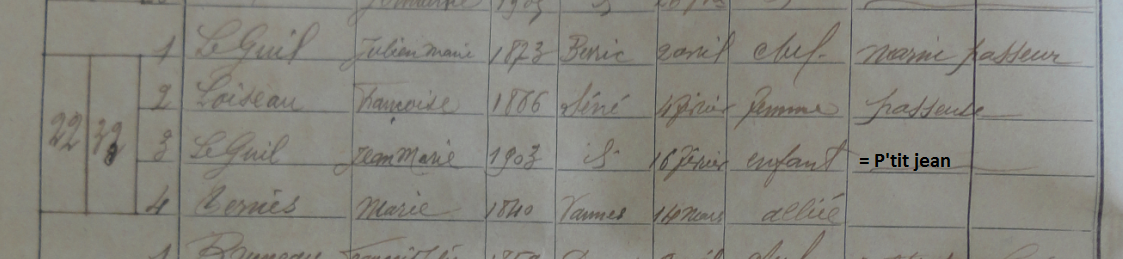 1 Le Guil Julien Marie 1873 Berric 2 avril chef marin passeur
22 32 2 Loiseau Françoise 1866 Séné 4 février femme passeuse
3 Le Guil Jean Marie 1903 id 16 février enfant = P'tit jean
4 Marie 1840 Vannes 14 mars alliée